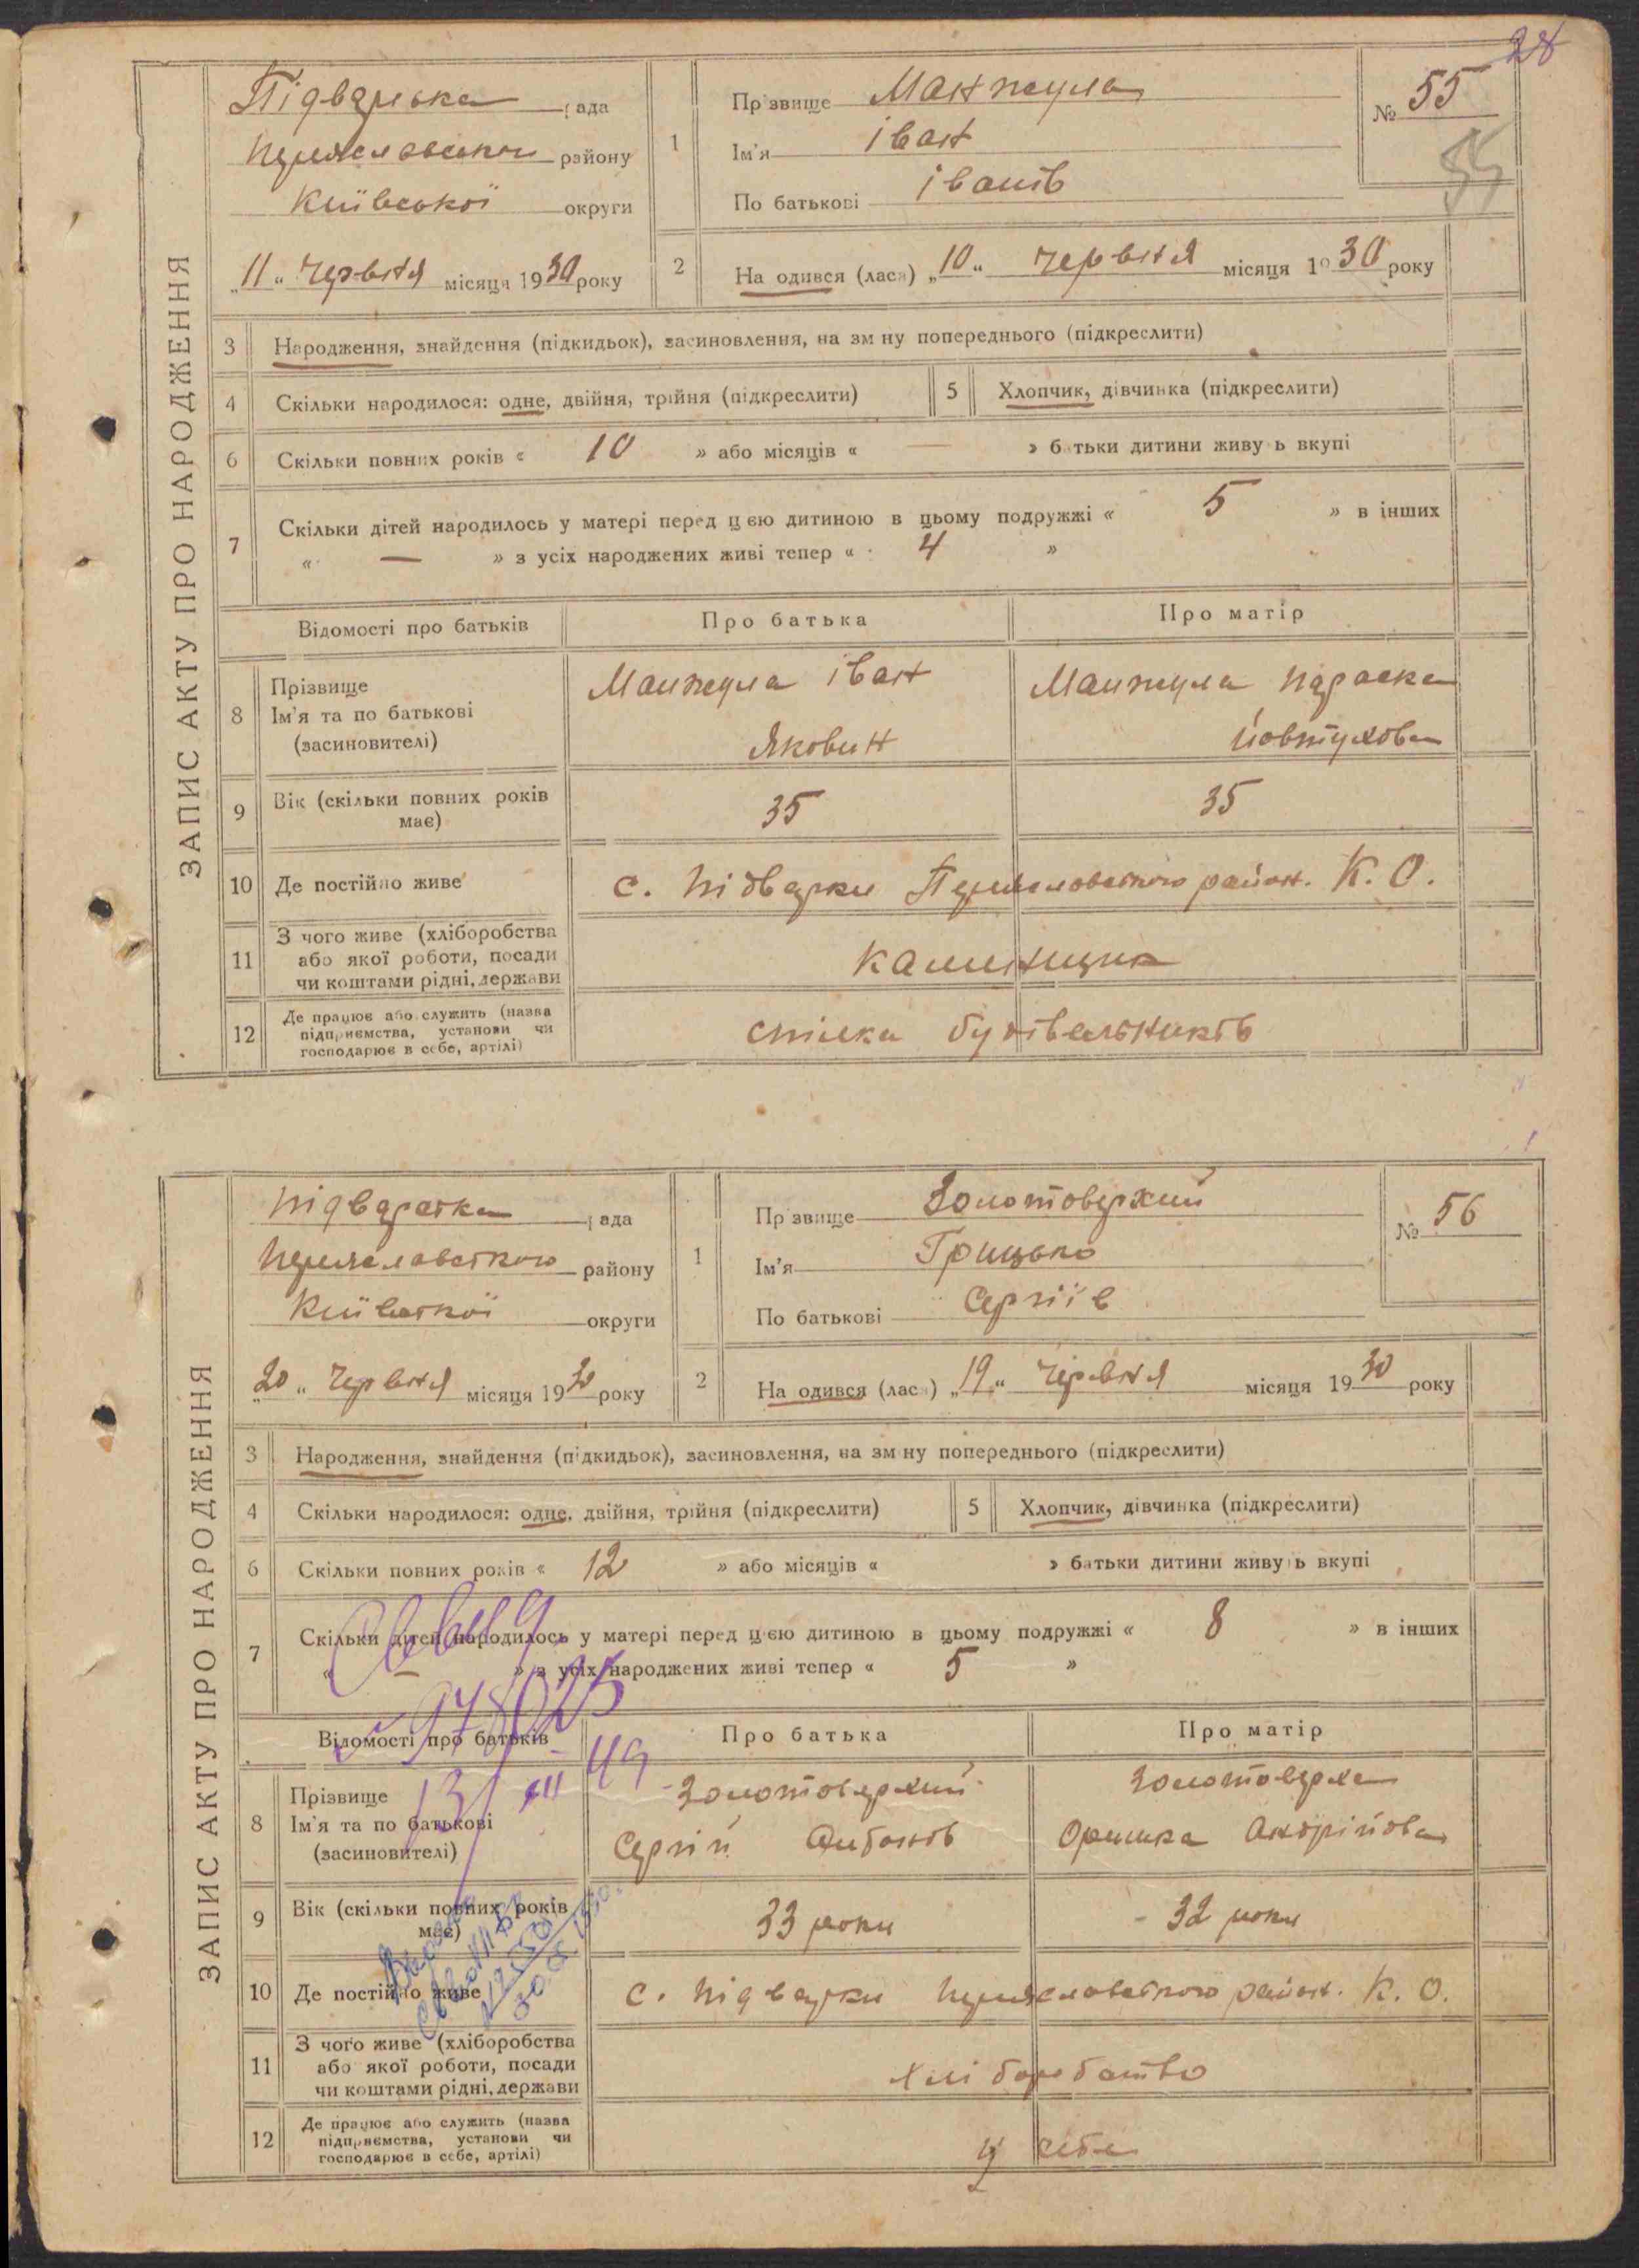 28
ЗАПИС АКТУ ПРО НАРОДЖЕННЯ
Підварська рада
Переяславського району
Київської округи
„11“ Червня місяця 1930 року
1
Прізвище Манжула
Ім'я Іван
По батькові Іванів
№ 55
55
2
Народився (лася) „10“ Червня місяця 1930 року
3 Народження, знайдення (підкидьок), засиновлення, на зміну попереднього (підкреслити)
4 Скільки народилося: одне, двійня, трійня (підкреслити) 5 Хлопчик, дівчинка (підкреслити)
6 Скільки повних років « 10 » або місяців « — » батьки дитини живуть вкупі
7 Скільки дітей народилось у матері перед цією дитиною в цьому подружжі « 5 » в інших
« — » з усіх народжених живі тепер « 4 »
Відомості про батьків Про батька Про матір
8 Прізвище
Ім'я та по батькові
(засиновителі)
Манжула Іван
Яковин
Манжула Параска
Йовтухова
9 Вік (скільки повних років має)
35 35
10 Де постійно живе с. Підварки Переяславського район. К. О.
11 З чого живе (хліборобства
або якої роботи, посади
чи коштами рідні, держави
каменщик
12 Де працює або служить (назва
підприємства, установи чи
господарює в себе, артілі)
спілка будівельників
ЗАПИС АКТУ ПРО НАРОДЖЕННЯ
Підварська рада
Переяславського району
Київської округи
„20“ Червня місяця 1930 року
1
Прізвище Золотоверхий
Ім'я Грицько
По батькові Сергіїв
№ 56
2
Народився (лася) „19“ Червня місяця 1930 року
3 Народження, знайдення (підкидьок), засиновлення, на зміну попереднього (підкреслити)
4 Скільки народилося: одне, двійня, трійня (підкреслити) 5 Хлопчик, дівчинка (підкреслити)
6 Скільки повних років « 12 » або місяців « » батьки дитини живуть вкупі
7 Скільки дітей народилось у матері перед цією дитиною в цьому подружжі « 8 » в інших
« — » з усіх народжених живі тепер « 5 »
Відомості про батьків Про батька Про матір
8 Прізвище
Ім'я та по батькові
(засиновителі)
Золотоверхий
Сергій
Золотоверха
Оришка Андрійова
9 Вік (скільки повних років має)
33 роки 32 роки
10 Де постійно живе с. Підварки Переяславського район. К. О.
11 З чого живе (хліборобства
або якої роботи, посади
чи коштами рідні, держави
хліборобство
12 Де працює або служить (назва
підприємства, установи чи
господарює в себе, артілі)
у себе